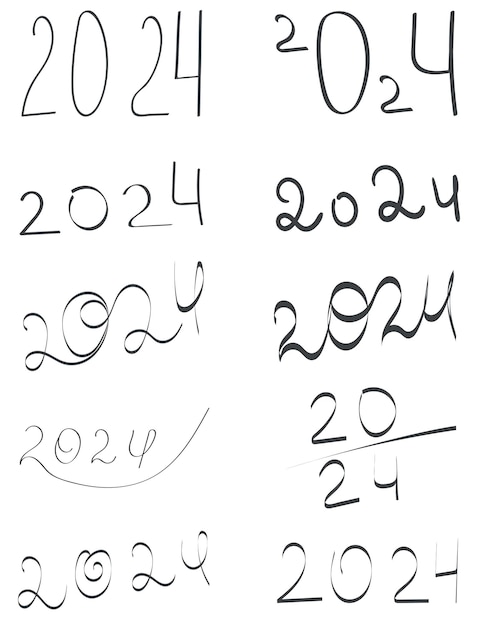 2024 2024
2024 2024
2024 2024
2024 20
24
2024 2024